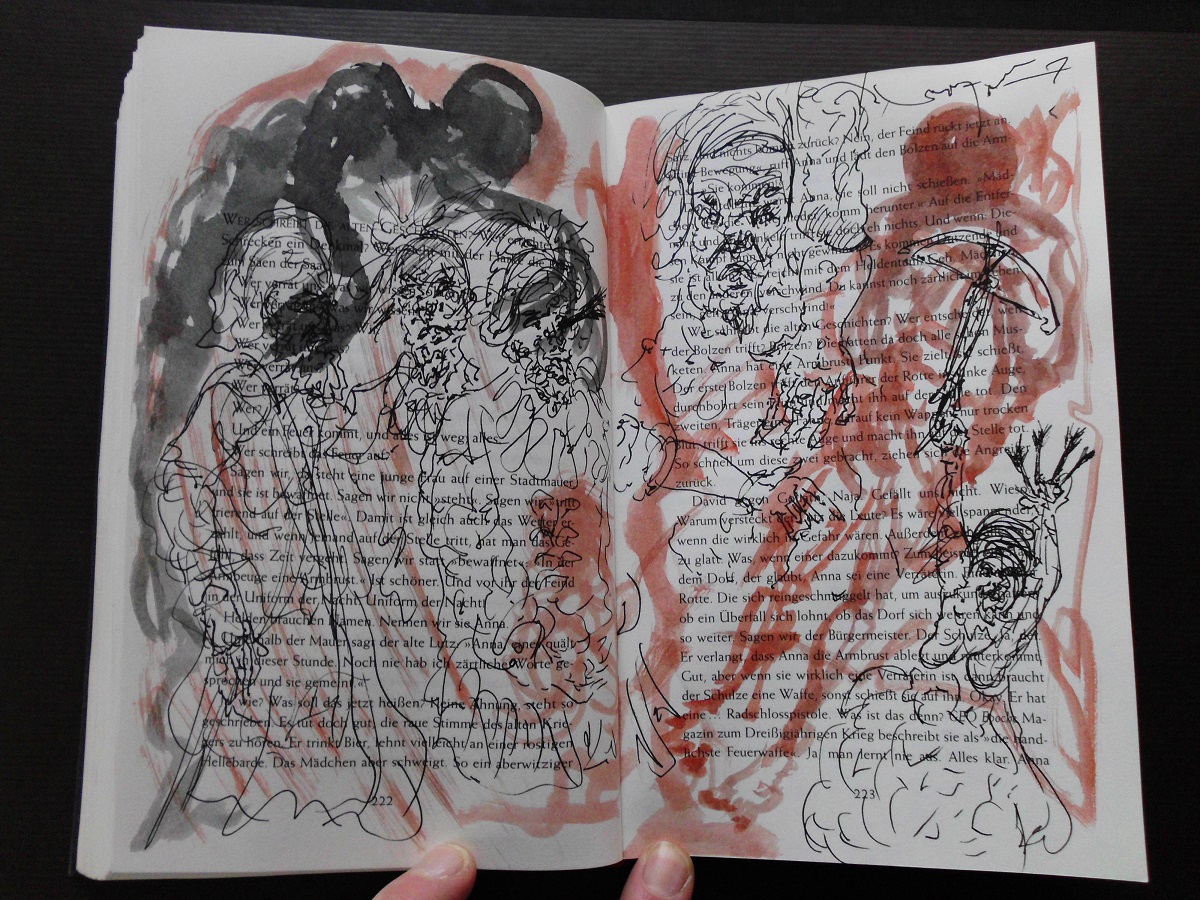 WER SCHREIBT DIE ALTEN GESCHICHTEN? Wer errichtet
Schrecken ein Denkmal? Wer
zum Säen der Saat
Wer verrät uns, was
Wer
Wer verrät uns, was? W
Wer v
Wer verrät uns?
Wer verrät
Wer?
Und ein Feuer kommt, und alles ist weg, alles.
Wer schreibt das Feuer auf?
Sagen wir, da steht eine junge Frau auf einer Stadtmauer,
und sie ist bewaffnet. Sagen wir nicht »steht«. Sagen wir »frie-
rierend auf der Stelle«. Damit ist gleich auch das Wetter er-
zählt, und wenn jemand auf der Stelle tritt, hat man das Ge-
fühl, dass Zeit vergeht. Sagen wir statt »bewaffnet«: »In der
Armbeuge eine Armbrust.« Ist schöner. Und vor ihr der Feind
in der Uniform der Nacht. Uniform der Nacht!
Helden brauchen Namen. Nennen wir sie Anna.
Unterhalb der Mauer sagt der alte Lutz: »Anna, eines quält
mich in dieser Stunde. Noch nie hab ich zärtliche Worte ge-
sprochen und sie gemeint.«
wie? Was soll das jetzt heißen? Keine Ahnung, steht so
geschrieben. Es tut doch gut, die raue Stimme des alten Krie-
gers zu hören. Er trinkt Bier, lehnt vielleicht an einer rostigen
Hellebarde. Das Mädchen aber schweigt. So ein aberwitziger
222
Satz und nichts kommt zurück? Nein, der Feind rückt jetzt an.
Bewegung«, ruft Anna und lädt den Bolzen auf die Arm-
brust. »Sie kommen
Anna, sie soll nicht schießen. »Mäd-
komm herunter.« Auf die Entfer-
nung und im Dunkeln triffst du doch eh nichts. Und wenn. Die-
sen Kampf kann man nicht gewinnen. Es kommen Dutzende, und
sie ist allein. Es reicht mit dem Heldentum. Geh, Mädchen,
zu den anderen, verschwind. Du kannst noch zärtlich im Leben
sein, verschwind!«
Wer schreibt die alten Geschichten? Wer entscheidet, wen
der Bolzen trifft? Bolzen? Die hatten da doch alle schon Mus-
keten. Anna hat eine Armbrust, Punkt. Sie zielt, sie schießt.
Der erste Bolzen trifft den Anführer der Rotte ins linke Auge,
durchbohrt sein Hirn und macht ihn auf der Stelle tot. Den
zweiten, Träger einer Fahne, darauf kein Wappen, nur trocken
Blut, trifft sie ins rechte Auge und macht ihn auf der Stelle tot.
So schnell um diese zwei gebracht, ziehen sich die Angreifer
zurück.
David gegen Goliath. Naja. Gefällt uns nicht. Wieso?
Warum versteckt der Lutz die Leute? Es wäre viel spannender,
wenn die wirklich in Gefahr wären. Außerdem
zu glatt. Was, wenn einer dazukommt? Zum Beispiel
dem Dorf, der glaubt, Anna sei eine Verräterin.
Rotte. Die sich reingeschmuggelt hat, um auszukundschaften,
ob ein Überfall sich lohnt, ob das Dorf sich wehren kann und
so weiter. Sagen wir, der Bürgermeister. Der Schulze, ja, der.
Er verlangt, dass Anna die Armbrust ablegt und runterkommt.
Gut, aber wenn sie wirklich eine Verräterin ist, dann braucht
der Schulze eine Waffe, sonst schießt sie auf ihn. Okay. Er hat
eine … Radschlosspistole. Was ist das denn? GEO Epoche Ma-
gazin zum Dreißigjährigen Krieg beschreibt sie als »die hand-
lichste Feuerwaffe«. Ja, man lernt nie aus. Alles klar. Anna
223